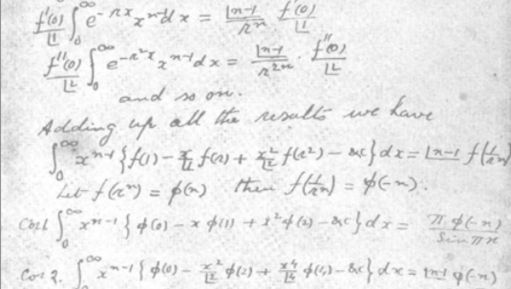 f'(0)/⌊1 ∫₀^∞ e^{-rx} x^{n-1} dx = ⌊n-1/r^n f'(0)/⌊1
f''(0)/⌊2 ∫₀^∞ e^{-r²x} x^{n-1} dx = ⌊n-1/r^{2n} · f''(0)/⌊2
and so on.
Adding up all the results we have
∫₀^∞ x^{n-1} {f(1) - x/⌊1 f(r) + x²/⌊2 f(r²) - &c} dx = ⌊n-1 f(1/r^n)
Let f(r^n) = φ(n) then f(1/r^n) = φ(-n).
Cor 1 ∫₀^∞ x^{n-1} {φ(0) - x φ(1) + x² φ(2) - &c} dx = π φ(-n)/sin πn
Cor 2. ∫₀^∞ x^{n-1} {φ(0) - x²/⌊2 φ(2) + x⁴/⌊4 φ(4) - &c} dx =